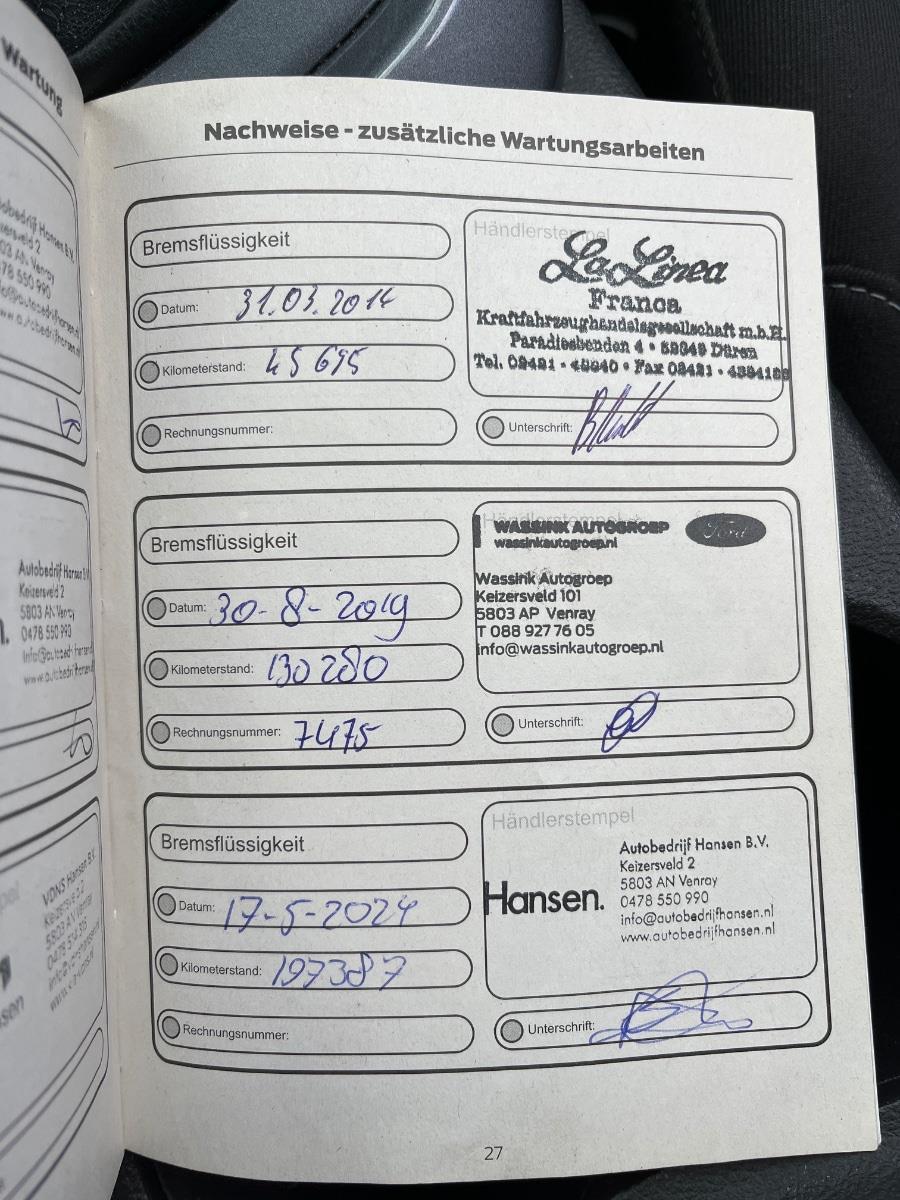 Wartung
Autobedrijf Hansen B.V.
Keizersveld 2
5803 AN Venray
0478 550 990
Autobedrijf Hansen B.V.
Keizersveld 2
5803 AN Venray
0478 550 990
VDNS Hansen B.V.
Nachweise - zusätzliche Wartungsarbeiten
Bremsflüssigkeit
Datum: 31.03.2014
Kilometerstand: 45 695
Rechnungsnummer:
Händlerstempel
La Linea
Franca
Kraftfahrzeughandelsgesellschaft m.b.H.
Paradiesbenden 4 • 52349 Düren
Unterschrift:
Bremsflüssigkeit
Datum: 30-8-2019
Kilometerstand: 130280
Rechnungsnummer: 7475
Händlerstempel
WASSINK AUTOGROEP Ford
wassinkautogroep.nl
Wassink Autogroep
Keizersveld 101
5803 AP Venray
T 088 927 76 05
info@wassinkautogroep.nl
Unterschrift:
Bremsflüssigkeit
Datum: 17-5-2024
Kilometerstand: 197387
Rechnungsnummer:
Händlerstempel
Hansen.
Autobedrijf Hansen B.V.
Keizersveld 2
5803 AN Venray
0478 550 990
info@autobedrijfhansen.nl
www.autobedrijfhansen.nl
Unterschrift:
27